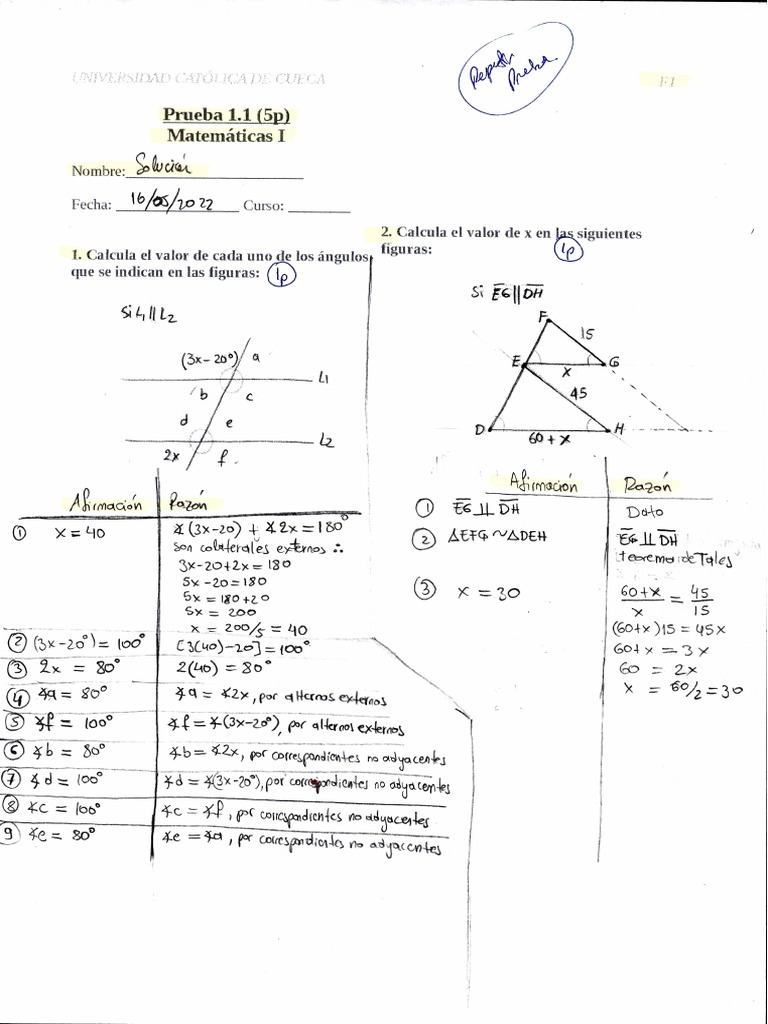 UNIVERSIDAD CATÓLICA DE CUECA
F1
Prueba 1.1 (5p)
Matemáticas I
Nombre: Solución
Fecha: 16/05/2022 Curso:
1. Calcula el valor de cada uno de los ángulos
que se indican en las figuras: 1p
Si L1 || L2
(3x-20°) a
L1
b c
d e
L2
2x f
Afirmación Razón
① x = 40 ∡(3x-20) + ∡2x = 180°
son colaterales externos ∴
3x-20+2x = 180
5x-20 = 180
5x = 180+20
5x = 200
x = 200/5 = 40
② (3x-20°) = 100° [3(40)-20] = 100°
③ 2x = 80° 2(40) = 80°
④ ∡a = 80° ∡a = ∡2x, por alternos externos
⑤ ∡f = 100° ∡f = ∡(3x-20°), por alternos externos
⑥ ∡b = 80° ∡b = ∡2x, por correspondientes no adyacentes
⑦ ∡d = 100° ∡d = ∡(3x-20°), por correspondientes no adyacentes
⑧ ∡c = 100° ∡c = ∡f, por correspondientes no adyacentes
⑨ ∡e = 80° ∡e = ∡a, por correspondientes no adyacentes
2. Calcula el valor de x en las siguientes
figuras: 1p
Si EG || DH
F
15
E G
x
45
D H
60 + x
Afirmación Razón
① EG ⊥⊥ DH Dato
② ΔEFG ~ ΔDEH EG ⊥⊥ DH
teorema de Tales
③ x = 30 60+x/x = 45/15
(60+x)15 = 45x
60+x = 3x
60 = 2x
x = 60/2 = 30